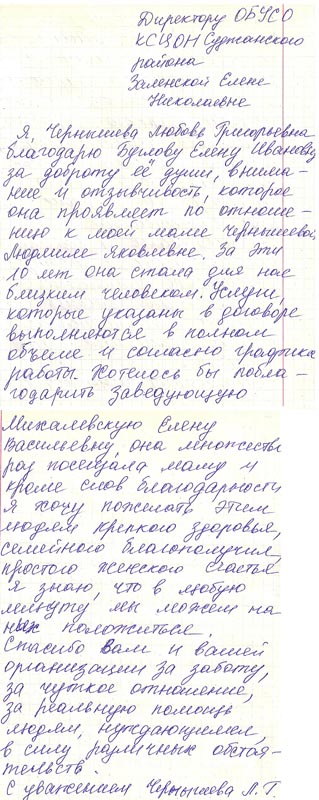 Директору ОБУСО
КСЦОН Суджанского
района
Заленской Елене
Николаевне
Я, Чернышева Любовь Григорьевна
благодарю Буглову Елену Ивановну
за доброту её души, внима-
ние и отзывчивость, которое
она проявляет по отноше-
нию к моей маме Чернышевой
Людмиле Яковлевне. За эти
10 лет она стала для нас
близким человеком. Услуги,
которые указаны в договоре
выполняются в полном
объеме и согласно графика
работы. Хотелось бы побла-
годарить заведующую
Михалевскую Елену
Васильевну, она множество
раз посещала маму и
кроме слов благодарности
я хочу пожелать этим
людям крепкого здоровья,
семейного благополучия,
простого женского счастья
Я знаю, что в любую
минуту мы можем на
них положиться.
Спасибо Вам и вашей
организации за заботу,
за чуткое отношение,
за реальную помощь
людям, нуждающимся,
в силу различных обстоя-
тельств.
С уважением Чернышева Л.Г.